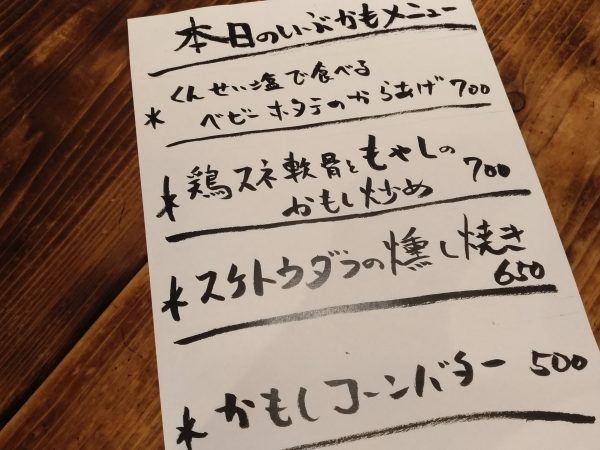 本日のいぶかもメニュー
* くんせい塩で食べる
ベビーホタテのからあげ 700
* 鶏スネ軟骨ともやしの
かもし炒め 700
* スケトウダラの燻し焼き
650
* かもしコーンバター 500